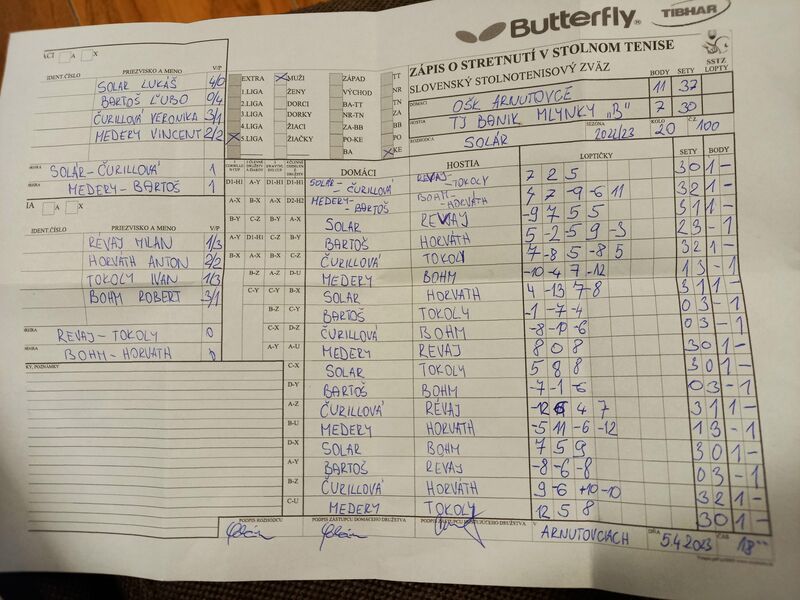 Butterfly® TIBHAR
ZÁPIS O STRETNUTÍ V STOLNOM TENISE
SLOVENSKÝ STOLNOTENISOVÝ ZVÄZ
BODY SETY SSTZ LOPTY
DOMÁCI OŠK ARNUTOVCE 11 37
HOSTIA TJ BANÍK MLYNKY "B" 7 30
ROZHODCA SOLÁR SEZÓNA 2022/23 KOLO 20 Č.Z. 100
A X
IDENT.ČÍSLO PRIEZVISKO A MENO V/P
SOLAR LUKÁŠ 4/0
BARTOŠ ĽUBO 0/4
ČURILLOVÁ VERONIKA 3/1
MEDERY VINCENT 2/2
SOLÁR-ČURILLOVÁ 1
MEDERY-BARTOŠ 1
A X
IDENT.ČÍSLO PRIEZVISKO A MENO V/P
REVAJ MILAN 1/3
HORVÁTH ANTON 2/2
TOKOLY IVAN 1/3
BOHM ROBERT 3/1
REVAJ-TOKOLY 0
BOHM-HORVÁTH 0
POZNÁMKY
EXTRA MUŽI ZÁPAD TT
1.LIGA ŽENY VÝCHOD NR
2.LIGA DORCI BA-TT TN
3.LIGA DORKY NR-TN ZA
4.LIGA ŽIACI ZA-BB BB
5.LIGA ŽIAČKY PO-KE PO
BA KE
DOMÁCI HOSTIA LOPTIČKY SETY BODY
D1-H1 A-Y D1-H1 D1-H1 SOLAR-ČURILLOVÁ REVAJ-TOKOLY 7 2 5 3 0 1 -
A-X B-X A-X D2-H2 MEDERY-BARTOŠ BOHM-HORVÁTH 4 7 -9 -6 11 3 2 1 -
B-Y C-Z B-Y A-X SOLAR REVAJ -9 7 5 5 3 1 1 -
A-Y D1-H1 C-Z B-Y BARTOŠ HORVÁTH 5 -2 -5 9 -3 2 3 - 1
B-X A-X B-X C-Z ČURILLOVÁ TOKOLY 7 -8 5 -8 5 3 2 1 -
B-Z A-Z D-U MEDERY BOHM -10 -4 7 -12 1 3 - 1
C-Y C-Y B-X SOLAR HORVATH 4 -13 7 8 3 1 1 -
B-Z C-Y BARTOŠ TOKOLY -1 -7 -4 0 3 - 1
C-X D-Z ČURILLOVÁ BOHM -8 -10 -6 0 3 - 1
A-Y A-U MEDERY REVAJ 8 0 8 3 0 1 -
C-X SOLAR TOKOLY 5 8 8 3 0 1 -
D-Y BARTOŠ BOHM -7 -1 -6 0 3 - 1
A-Z ČURILLOVÁ RÉVAJ -12 6 4 7 3 1 1 -
B-U MEDERY HORVATH -5 11 -6 -12 1 3 - 1
D-X SOLAR BOHM 7 5 9 3 0 1 -
A-Y BARTOŠ REVAJ -8 -6 -8 0 3 - 1
B-Z ČURILLOVÁ HORVÁTH 9 -6 +10 -10 3 2 1 -
C-U MEDERY TOKOLY 12 5 8 3 0 1 -
PODPIS ROZHODCU PODPIS ZÁSTUPCU DOMÁCEHO DRUŽSTVA PODPIS ZÁSTUPCU HOSŤUJÚCEHO DRUŽSTVA V ARNUTOVCIACH DŇA 5.4.2023 ČAS 18⁰⁰